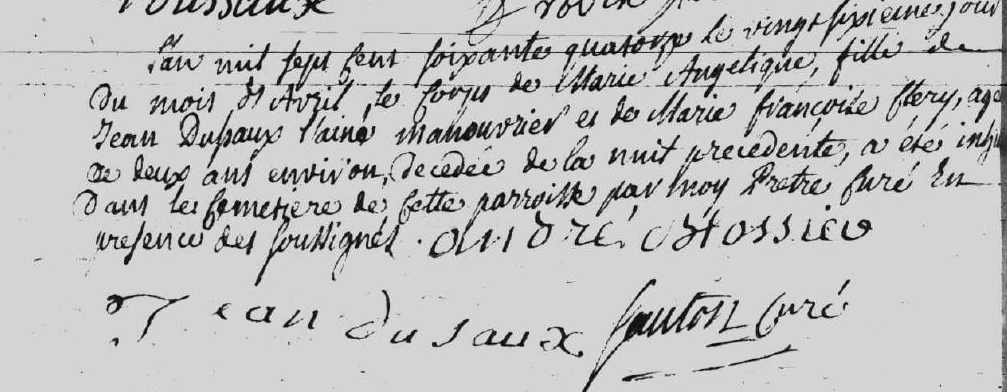 L'an mil sept cent soixante quatorze le vingt sixieme jour
Du mois D'Avril, le Corps de Marie Angelique, fille de
Jean Dusaux l'ainé manouvrier et de Marie françoise flery, agé
De deux ans environ, Decedée de la nuit precedente, a été inhu
Dans le Cemetiere de Cette parroisse par moy Pretre Curé En
presence des soussignés. andré
Jean dusaux Curé